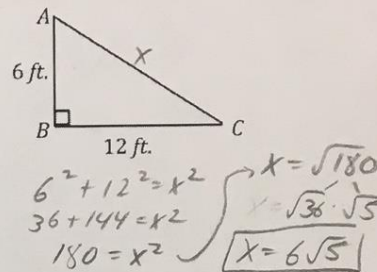 A
x
6 ft.
B
C
12 ft.
6² + 12² = x²
36 + 144 = x²
180 = x²
x = √180
x = √36 · √5
x = 6√5